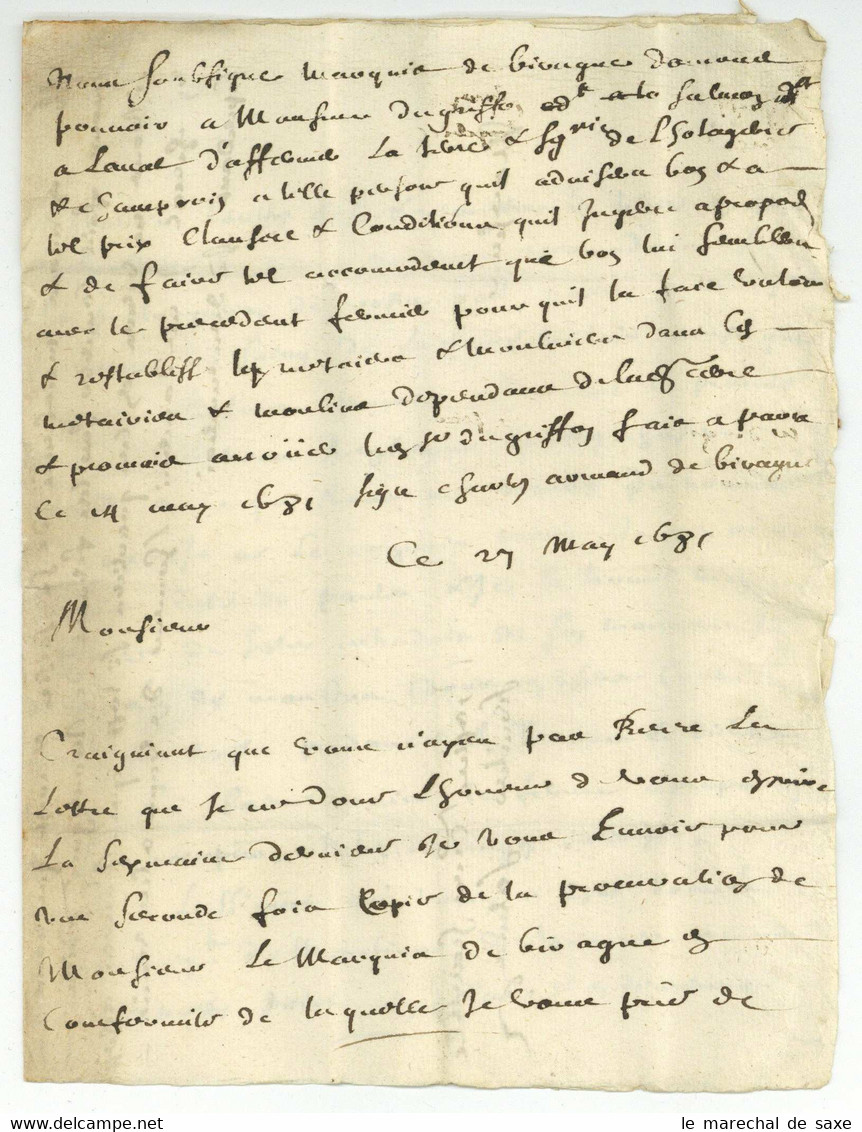 Nous soubsigne Marquis de birague donnons
pouvoir a Monsieur dugriffon
a Laval d'affermer La terre & sgrie de L hotagerie
& champroy a telle personne quil advisera bon & a
tel prix Clauses & Conditions quil Jugera apropos
& de faire tel accomodement que bon lui semblera
avec le precedent fermier pour quil la face valoir
& restablisse les metaiers & Monluiers dans les
metairies & moulins dependans de la terre
& promais avoüer led sr dugriffon fait a paris
Ce 14 may 1681 signe charles armand de birague
Ce 27 May 1681
Monsieur
Craigniant que vous n'ayez pas Recue La
Lettre que Je me donne Lhonneur de vous escrire
La sepmaine derniere Je vous Envoie pour
une seconde fois Copie de la procuration de
Monsieur Le Marquis de birague en
Conformité de laquelle Je vous prie de
le marechal de saxe